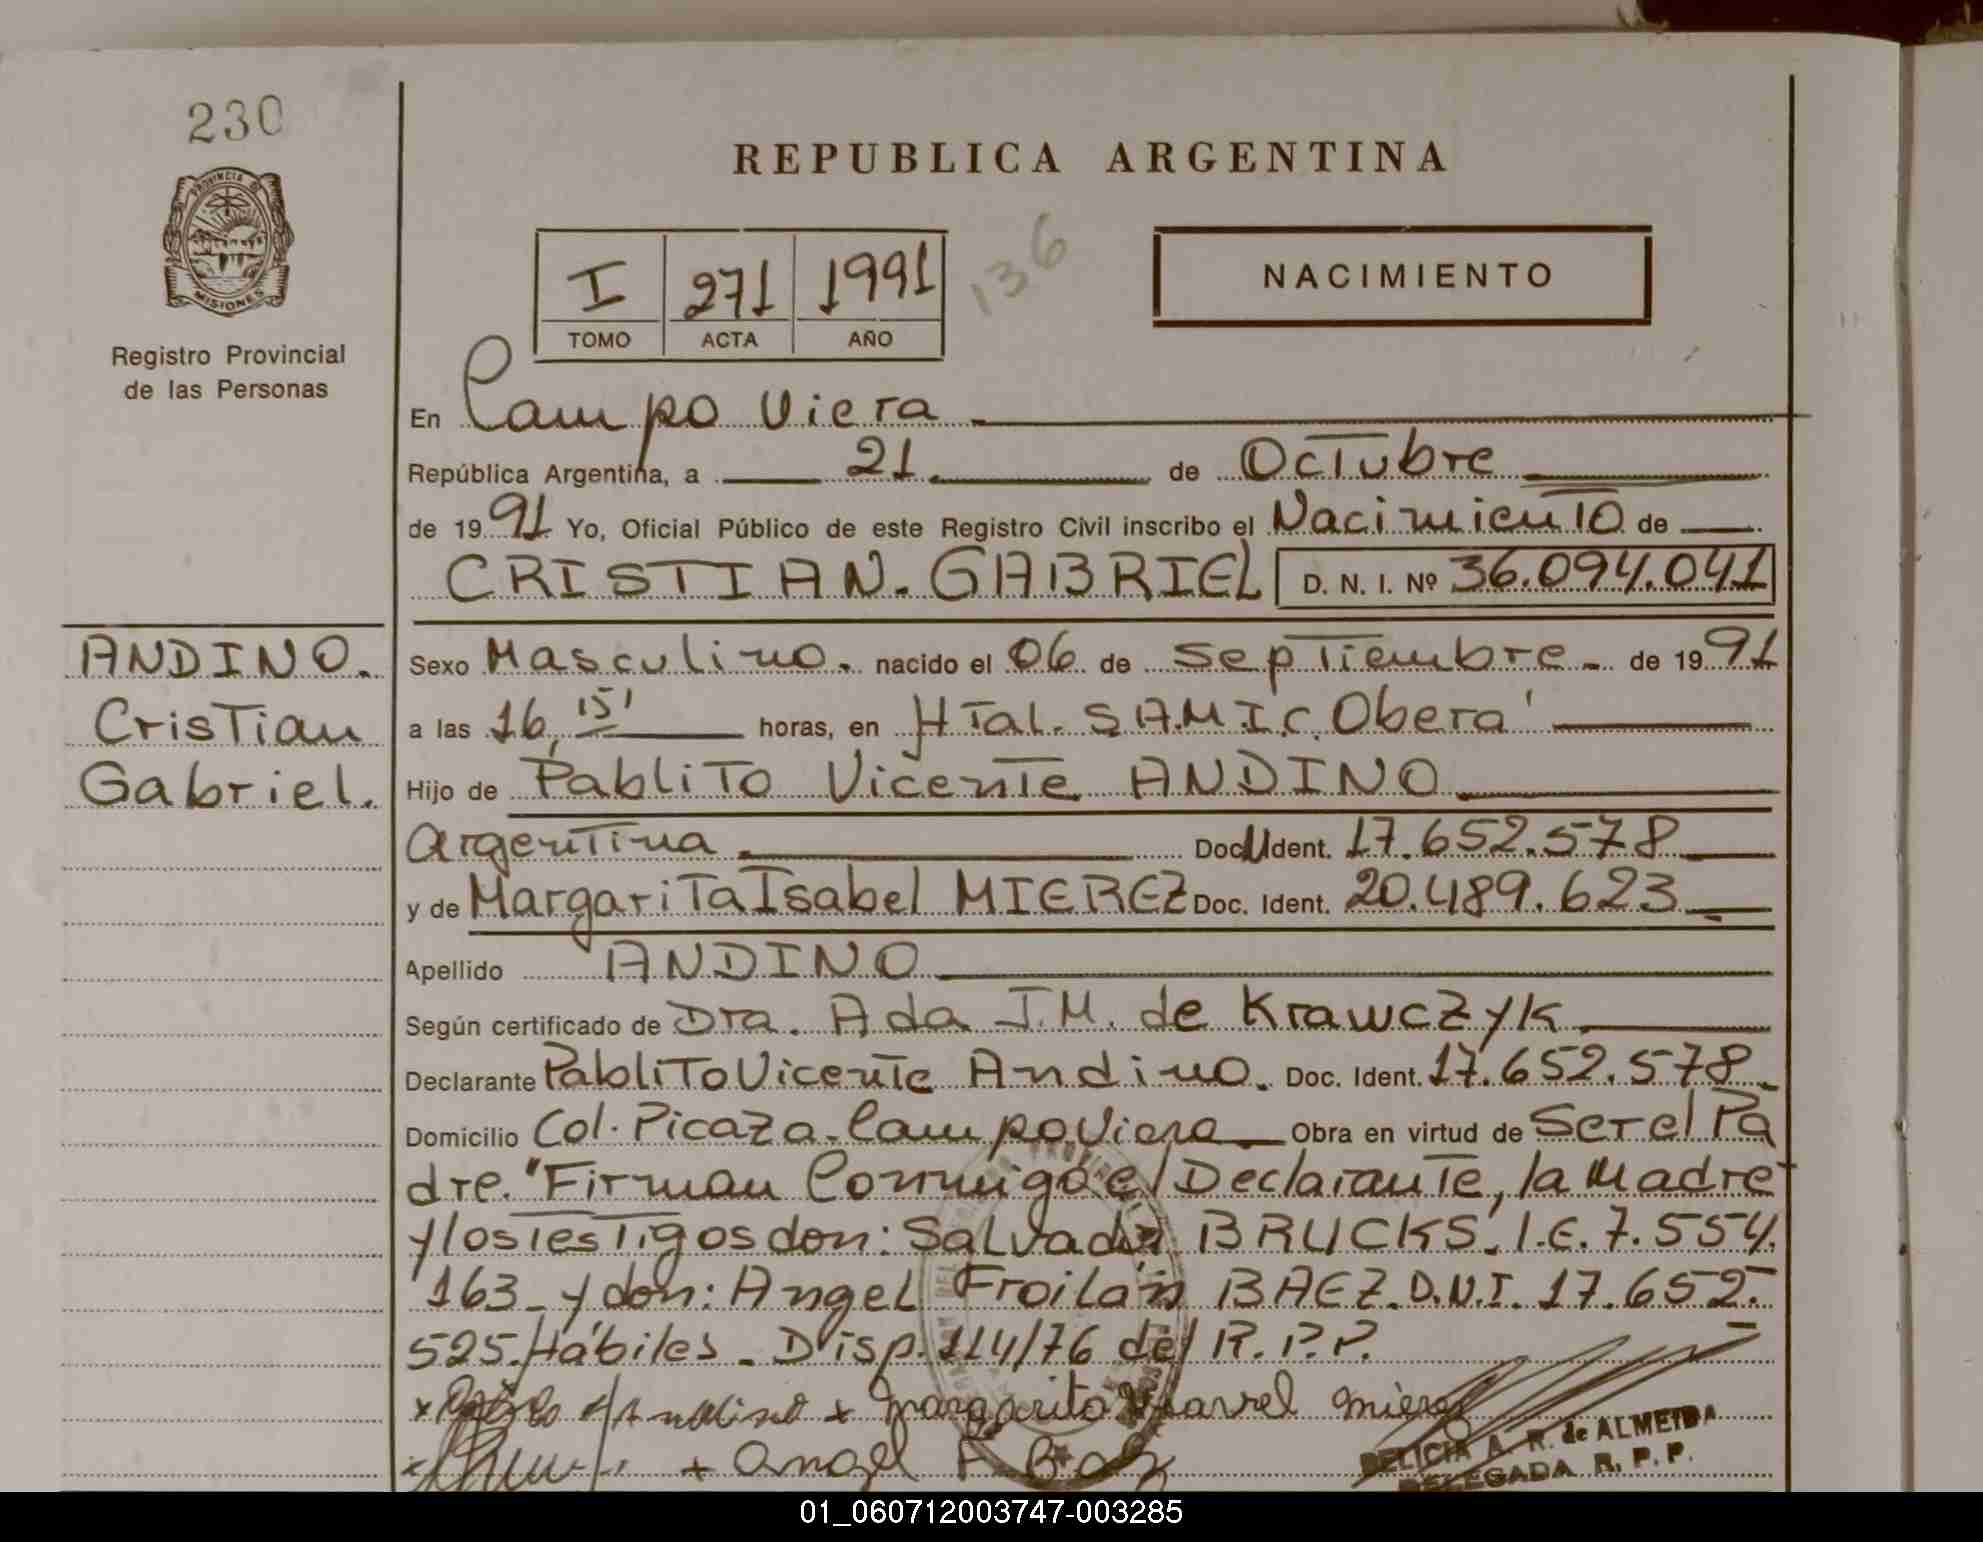 230
PROVINCIA DE
MISIONES
Registro Provincial
de las Personas
REPUBLICA ARGENTINA
I 271 1991
TOMO ACTA AÑO
136
NACIMIENTO
En Campo Viera
República Argentina, a 21 de Octubre
de 1991 Yo, Oficial Público de este Registro Civil inscribo el Nacimiento de
CRISTIAN. GABRIEL D. N. I. Nº 36.094.041
ANDINO.
Cristian
Gabriel.
Sexo Masculino. nacido el 06 de Septiembre de 1991
a las 16, 15' horas, en HTal. S.A.M.I.C. Oberá
Hijo de Pablito Vicente ANDINO
Argentina Doc. Ident. 17.652.578
y de Margarita Isabel MIEREZ Doc. Ident. 20.489.623
Apellido ANDINO
Según certificado de Dra. Ada J.M. de Krawczyk
Declarante Pablito Vicente Andino. Doc. Ident. 17.652.578
Domicilio Col. Picaza. Campo Viera Obra en virtud de Ser el Pa
dre. "Firman Conmigo el Declarante, la Madre
y los testigos don: Salvador BRUCKS. I.E. 7.554.
163 y don: Angel Froilán BAEZ. D.N.I. 17.652.
525. Hábiles. Disp. 114/76 del R.P.P.
x Andino x margarita mierez
+ Angel F. Baez
DELICIA A. R. de ALMEIDA
DELEGADA R. P. P.
01_060712003747-003285